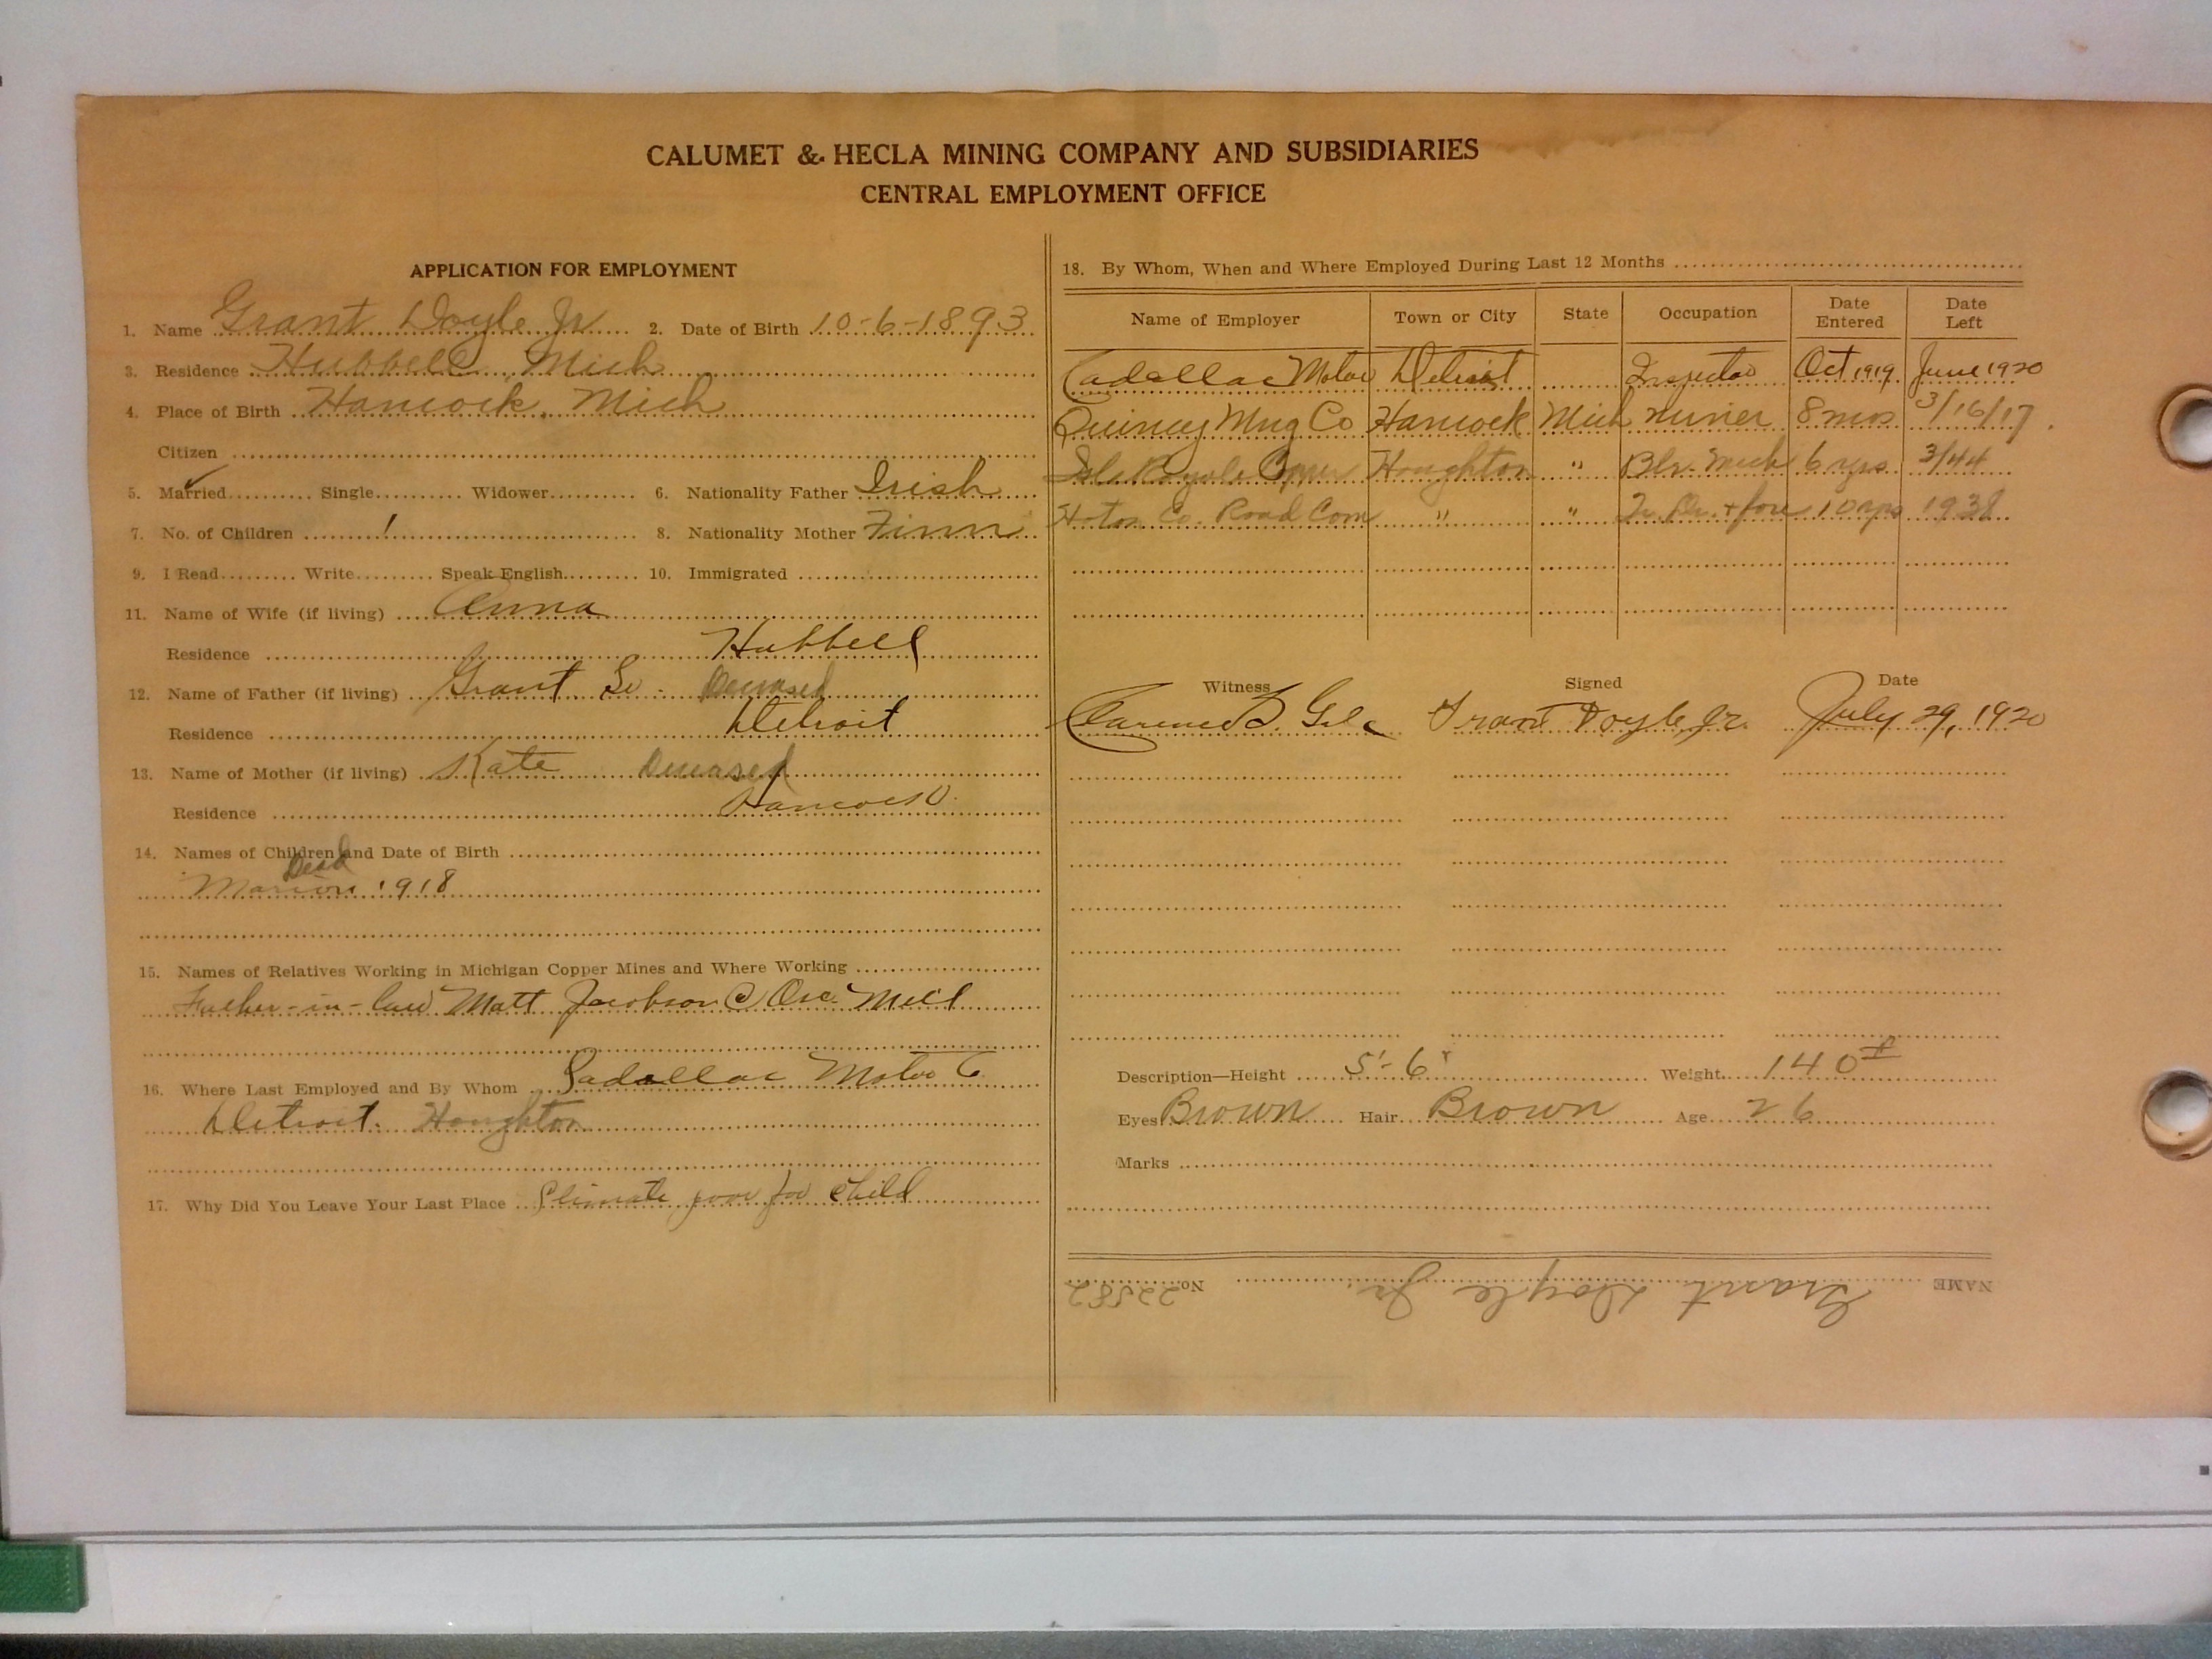 CALUMET & HECLA MINING COMPANY AND SUBSIDIARIES
CENTRAL EMPLOYMENT OFFICE
APPLICATION FOR EMPLOYMENT
1. Name Grant Doyle Jr 2. Date of Birth 10-6-1893
3. Residence Hubbell, Mich
4. Place of Birth Hancock, Mich
Citizen
5. Married ✓ Single Widower 6. Nationality Father Irish
7. No. of Children 1 8. Nationality Mother Finn
9. I Read Write Speak English 10. Immigrated
11. Name of Wife (if living) Anna
Residence Hubbell
12. Name of Father (if living) Grant Sr. Deceased
Residence Detroit
13. Name of Mother (if living) Kate Deceased
Residence Hancock
14. Names of Children and Date of Birth
Dead
Marion 1918
15. Names of Relatives Working in Michigan Copper Mines and Where Working
Father-in-law Matt Jacobson @ Osc. Mill
16. Where Last Employed and By Whom Cadallac Motor Co
Detroit. Houghton
17. Why Did You Leave Your Last Place Climate poor for child
18. By Whom, When and Where Employed During Last 12 Months
Name of Employer Town or City State Occupation Date Entered Date Left
Cadallac Motor Detroit Inspector Oct 1919 June 1920
Quincy Mng Co Hancock Mich Miner 8 mos 3/16/17
Isle Royale Copper Houghton " Blr. Mich 6 yrs 3/44
Hoton Co. Road Com " " + fore 10 yrs 1938
Witness Signed Date
Clarence Grant Doyle Jr. July 29, 1920
Description—Height 5'-6" Weight 140#
Eyes Brown Hair Brown Age 26
Marks
NAME Grant Doyle Jr. No. 22582